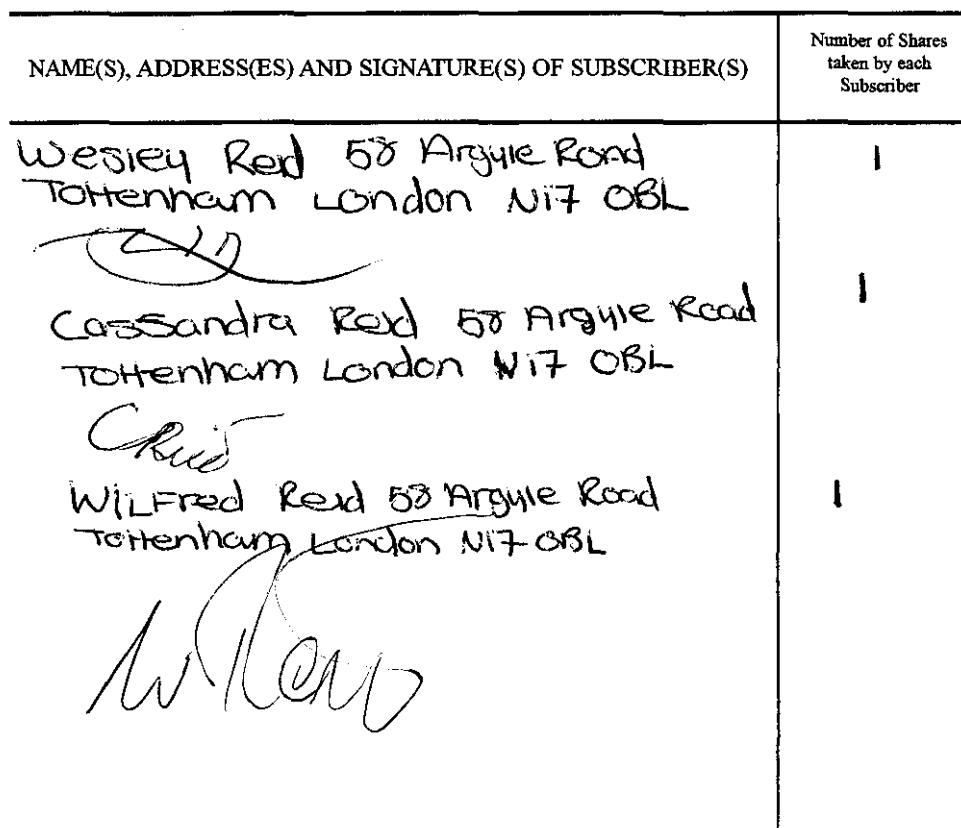 NAME(S), ADDRESS(ES) AND SIGNATURE(S) OF SUBSCRIBER(S)
Number of Shares
taken by each
Subscriber
Wesley Reid 58 Argyle Road 1
Tottenham London N17 0BL
Cassandra Reid 58 Argyle Road 1
Tottenham London N17 0BL
CReid
Wilfred Reid 58 Argyle Road 1
Tottenham London N17 0BL